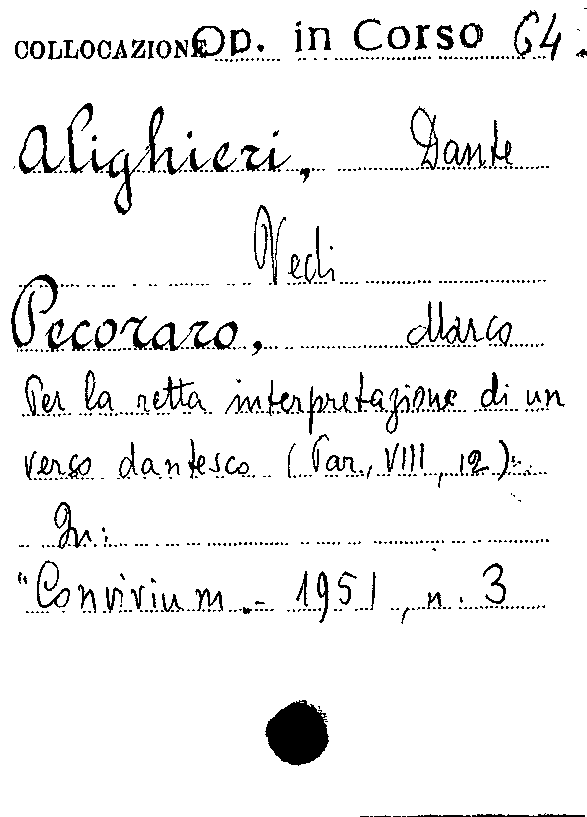 COLLOCAZIONE Op. in Corso 64.
Alighieri, Dante
Vedi
Pecoraro, Marco
Per la retta interpretazione di un
verso dantesco (Par., VIII, 12).
In:
"Convivium.- 1951, n. 3